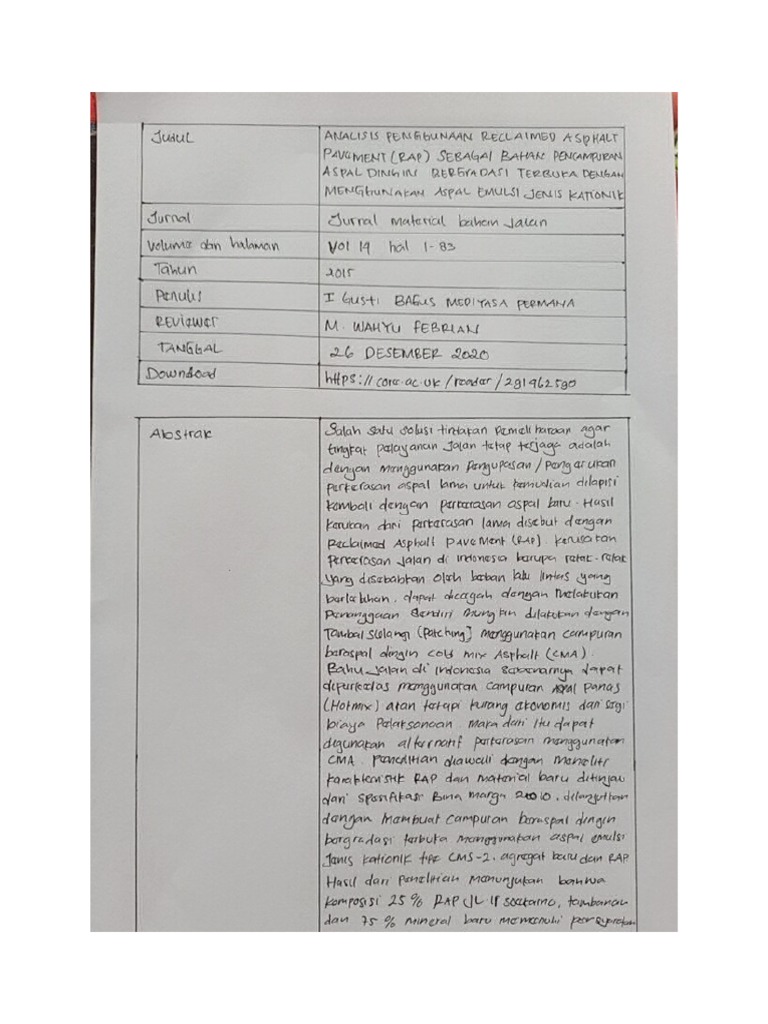 JUDUL
ANALISIS PENGGUNAAN RECLAIMED ASPHALT
PAVGMENT (RAP) SEBAGAI BAHAN PENCAMPURAN
ASPAL DINGIN BERGRADASI TERBUKA DENGAN
MENGGUNAKAN ASPAL EMULSI JENIS KATIONIK
Jurnal
Jurnal material bahan Jalan
Volume dan halaman
Vol 19 hal 1-83
Tahun
2015
Penulis
I Gusti BAGUS MEDIYASA PERMANA
REVIEWER
M. WAHYU FEBRIAN
TANGGAL
26 DESEMBER 2020
Download
https://core.ac.uk/reader/291962590
Abstrak
Salah satu solusi tindakan pemeliharaan agar
tingkat pelayanan Jalan tetap terjaga adalah
dengan menggunakan pengupasan/pengarukan
perkerasan aspal lama untuk kemudian dilapisi
kembali dengan perkerasan aspal baru. Hasil
kerukan dari perkerasan lama disebut dengan
Reclaimed Asphall PAVEMENT (RAP). kerusakan
perkerasan Jalan di Indonesia berupa retak-retak
yang disebabkan oleh beban lalu lintas yang
berlebihan, dapat dicegah dengan melakukan
Penanggaan Sendiri mungkin dilakukan dengan
tambal sulang (Patching) menggunakan campuran
beraspal dingin Cold mix Asphalt (CMA).
Bahu Jalan di Indonesia sebenarnya dapat
diperkeras menggunakan campuran aspal panas
(Hotmix) akan tetapi kurang ekonomis dari segi
biaya pelaksanaan. Maka dari itu dapat
digunakan alternatif perkerasan menggunakan
CMA. Penelitian diawali dengan meneliti
karakteristik RAP dan material baru ditinjau
dari spesifikasi Bina Marga 2010. dilanjutkan
dengan membuat campuran beraspal dingin
bergradasi terbuka menggunakan aspal emulsi
Jenis kationik tipe CMS-2. agregat baru dan RAP
Hasil dari penelitian menunjukan bahwa
komposisi 25% RAP JL. Ir soekarno, tambanan
dan 75% mineral baru memenuhi persyaratan